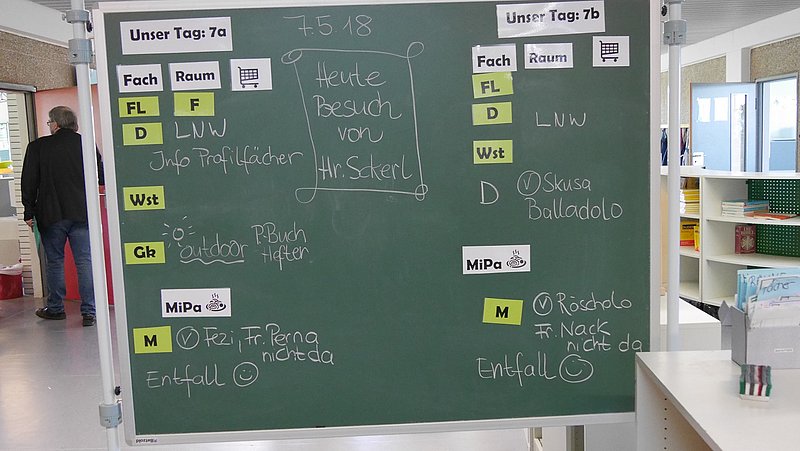 7.5.18
Unser Tag: 7a
Fach Raum
FL F
D LNW
Info Profilfächer
Wst
Gk outdoor P-Buch
Hefter
MiPa
M V Fezi, Fr. Perna
nicht da
Entfall
Heute
Besuch
von
Hr. Sckerl
Unser Tag: 7b
Fach Raum
FL
D LNW
Wst
D V Skusa
Balladolo
MiPa
M V Röscholo
Fr. Nack
nicht da
Entfall